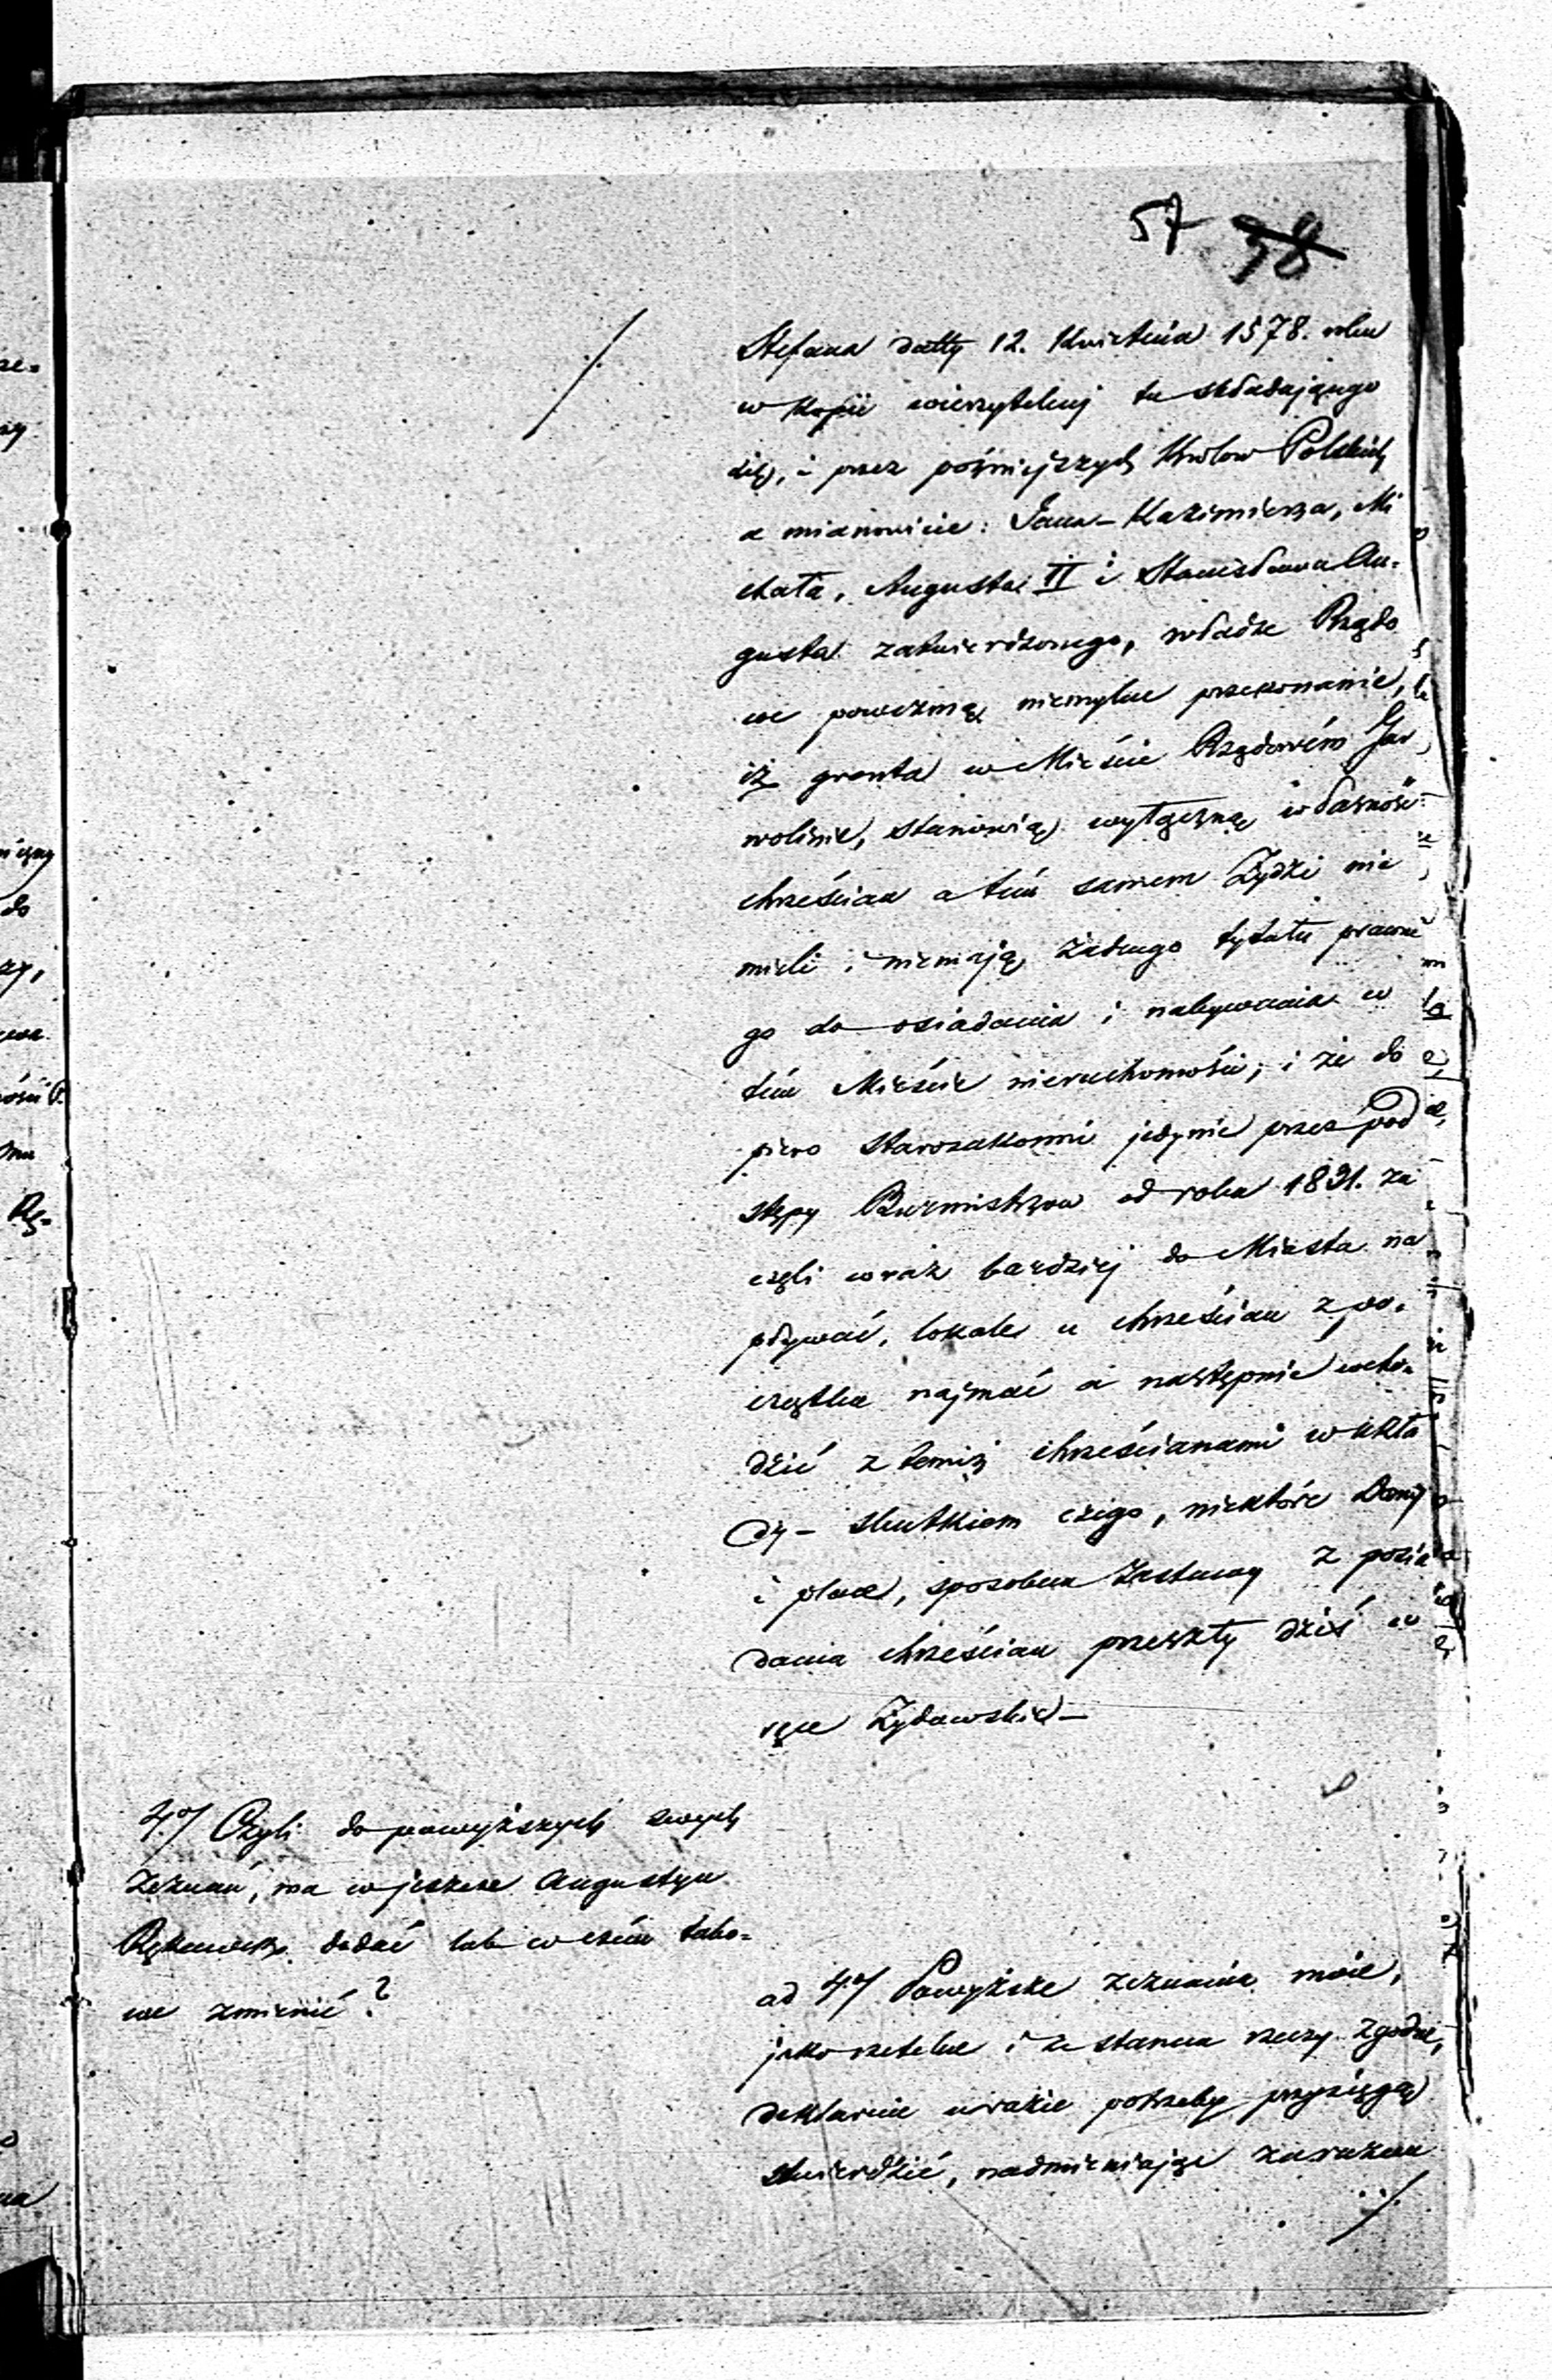 57 98
Stefana datty 12. Kwietnia 1578. roku
w Kopii wierzytelnej tu składającego
się, i przez poźniejszych Królow Polskich
a mianowicie: Jana-Kazimierza, Mi
chała, Augusta II i Stanisława Au-
gusta zatwierdzonego, władze Rządo
we powezmą niemylne przekonanie,
iż gronta w Mieście Rządowém Gar
wolinie, stanowią wyłączną własność
chrześcian a tém samem Żydzi nie
mieli i niemają żadnego tytułu prawne
go do osiadania i nabywania w
tém Mieście nieruchomości; i że do
piero Starozakonni jedynie przez pod
stępy Burmistrzow od roku 1831. za
częli coraz bardziej do Miasta na
pływać, lokale u chrześcian z po-
czątku najmać a następnie wcho-
dzić z temiż chrześcianami w ukła
dy – skutkiem czego, niektóre Domy
i place, sposobem zastawy z posia
dania chrześcian przeszły dziś w
ręce Żydowskie –
4º/ Czyli do powyższych swych
zeznań, ma w jeszcze Augustyn
dodać lub w czém tako-
we zmienić?
ad 4º/ Powyższe zeznania moie,
jako rzetelne i ze stanem rzeczy zgodne,
deklaruie w razie potrzeby przysięgą
stwierdzić, nadmieniając zarazem
./.